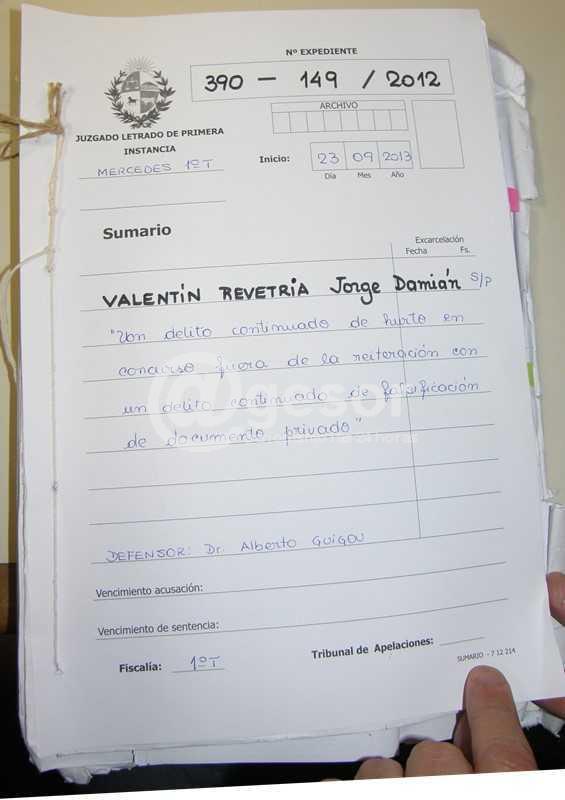 Nº EXPEDIENTE
390 - 149 / 2012
ARCHIVO
JUZGADO LETRADO DE PRIMERA
INSTANCIA
MERCEDES 1ºT
Inicio: 23 09 2013
Día Mes Año
Sumario
Excarcelación
Fecha Fs.
VALENTÍN REVETRIA Jorge Damián S/P
"Un delito continuado de hurto en
concurso fuera de la reiteración con
un delito continuado de falsificación
de documento privado"
@gesor
24 horas
DEFENSOR: Dr. Alberto GUIGOU
Vencimiento acusación:
Vencimiento de sentencia:
Fiscalía: 1ºT
Tribunal de Apelaciones:
SUMARIO - 7 12 214